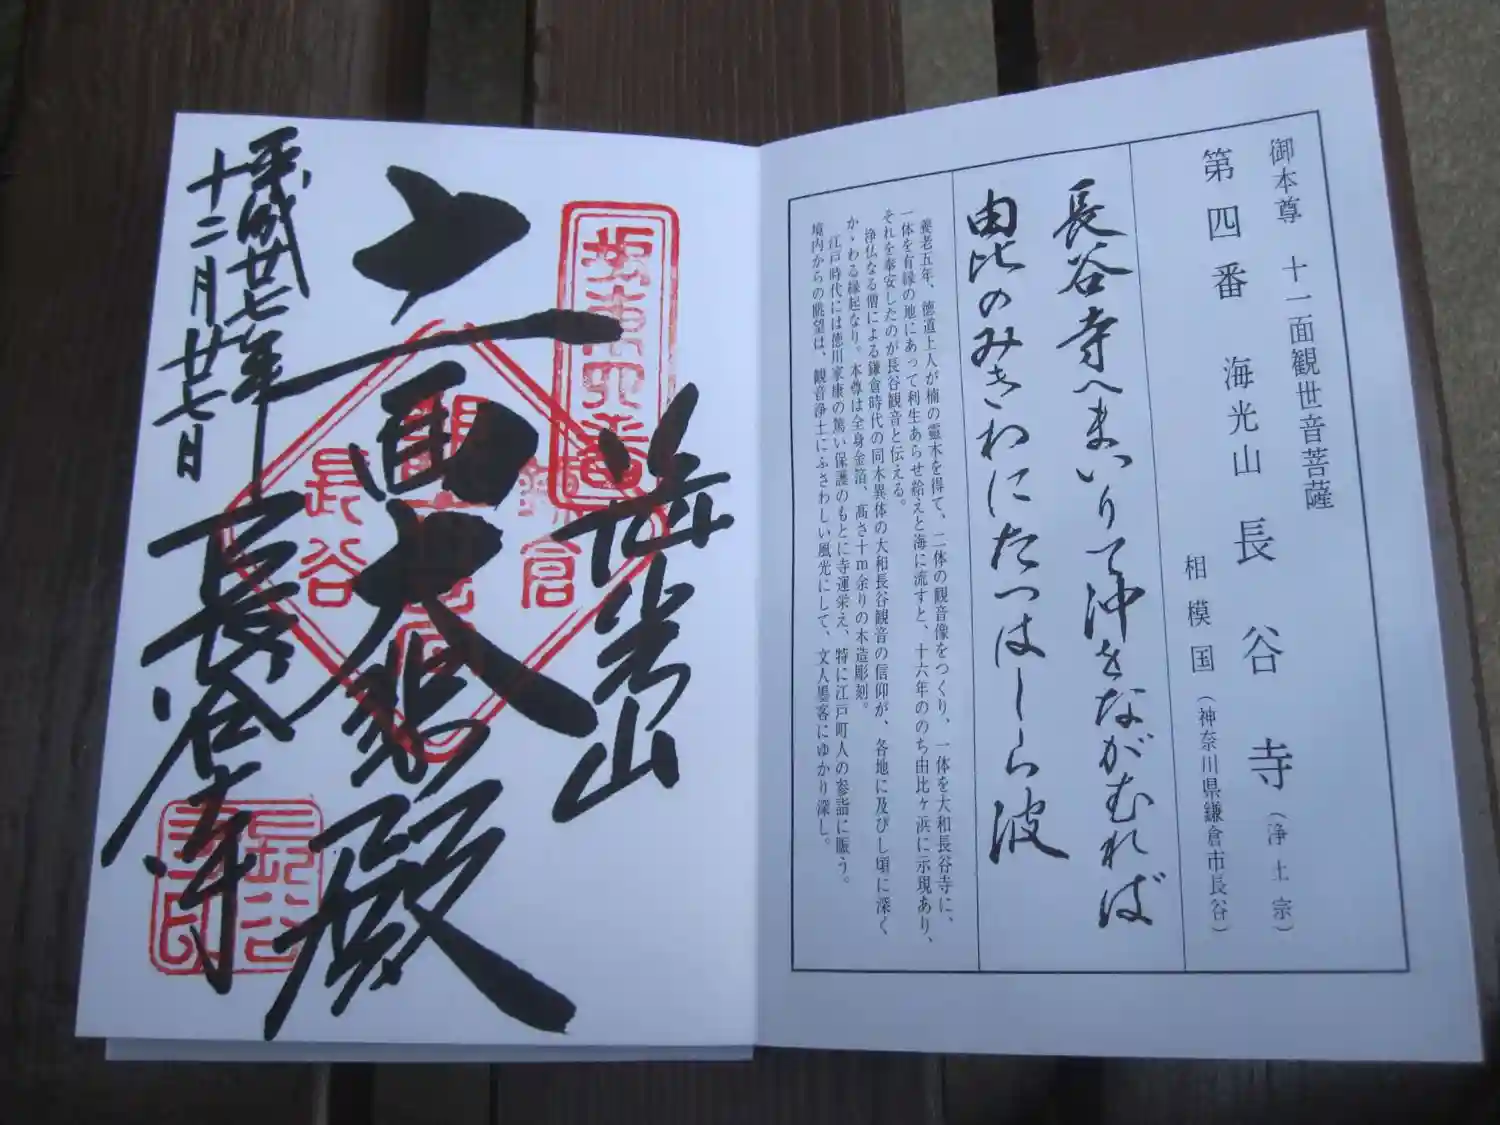 御本尊　十一面観世音菩薩
第四番　海光山　長谷寺（浄土宗）
相模国（神奈川県鎌倉市長谷）
長谷寺へまいりて沖をながむれば
由比のみぎわにたつはしら波
養老五年、徳道上人が楠の霊木を得て、二体の観音像をつくり、一体を大和長谷寺に、
一体を有縁の地にあって利生あらせ給えと海に流すと、十六年ののち由比ヶ浜に示現あり、
それを奉安したのが長谷観音と伝える。
浄仏なる僧による鎌倉時代の同木異体の大和長谷観音の信仰が、各地に及びし頃に深く
かゝわる縁起なり。本尊は全身金箔、高さ十ｍ余りの木造彫刻。
江戸時代には徳川家康の篤い保護のもとに寺運栄え、特に江戸町人の参詣に賑う。
境内からの眺望は、観音浄土にふさわしい風光にして、文人墨客にゆかり深し。
坂東四番
海光山
十一面大悲殿
鎌倉
長谷
平成廿七年
十二月廿七日
長谷寺